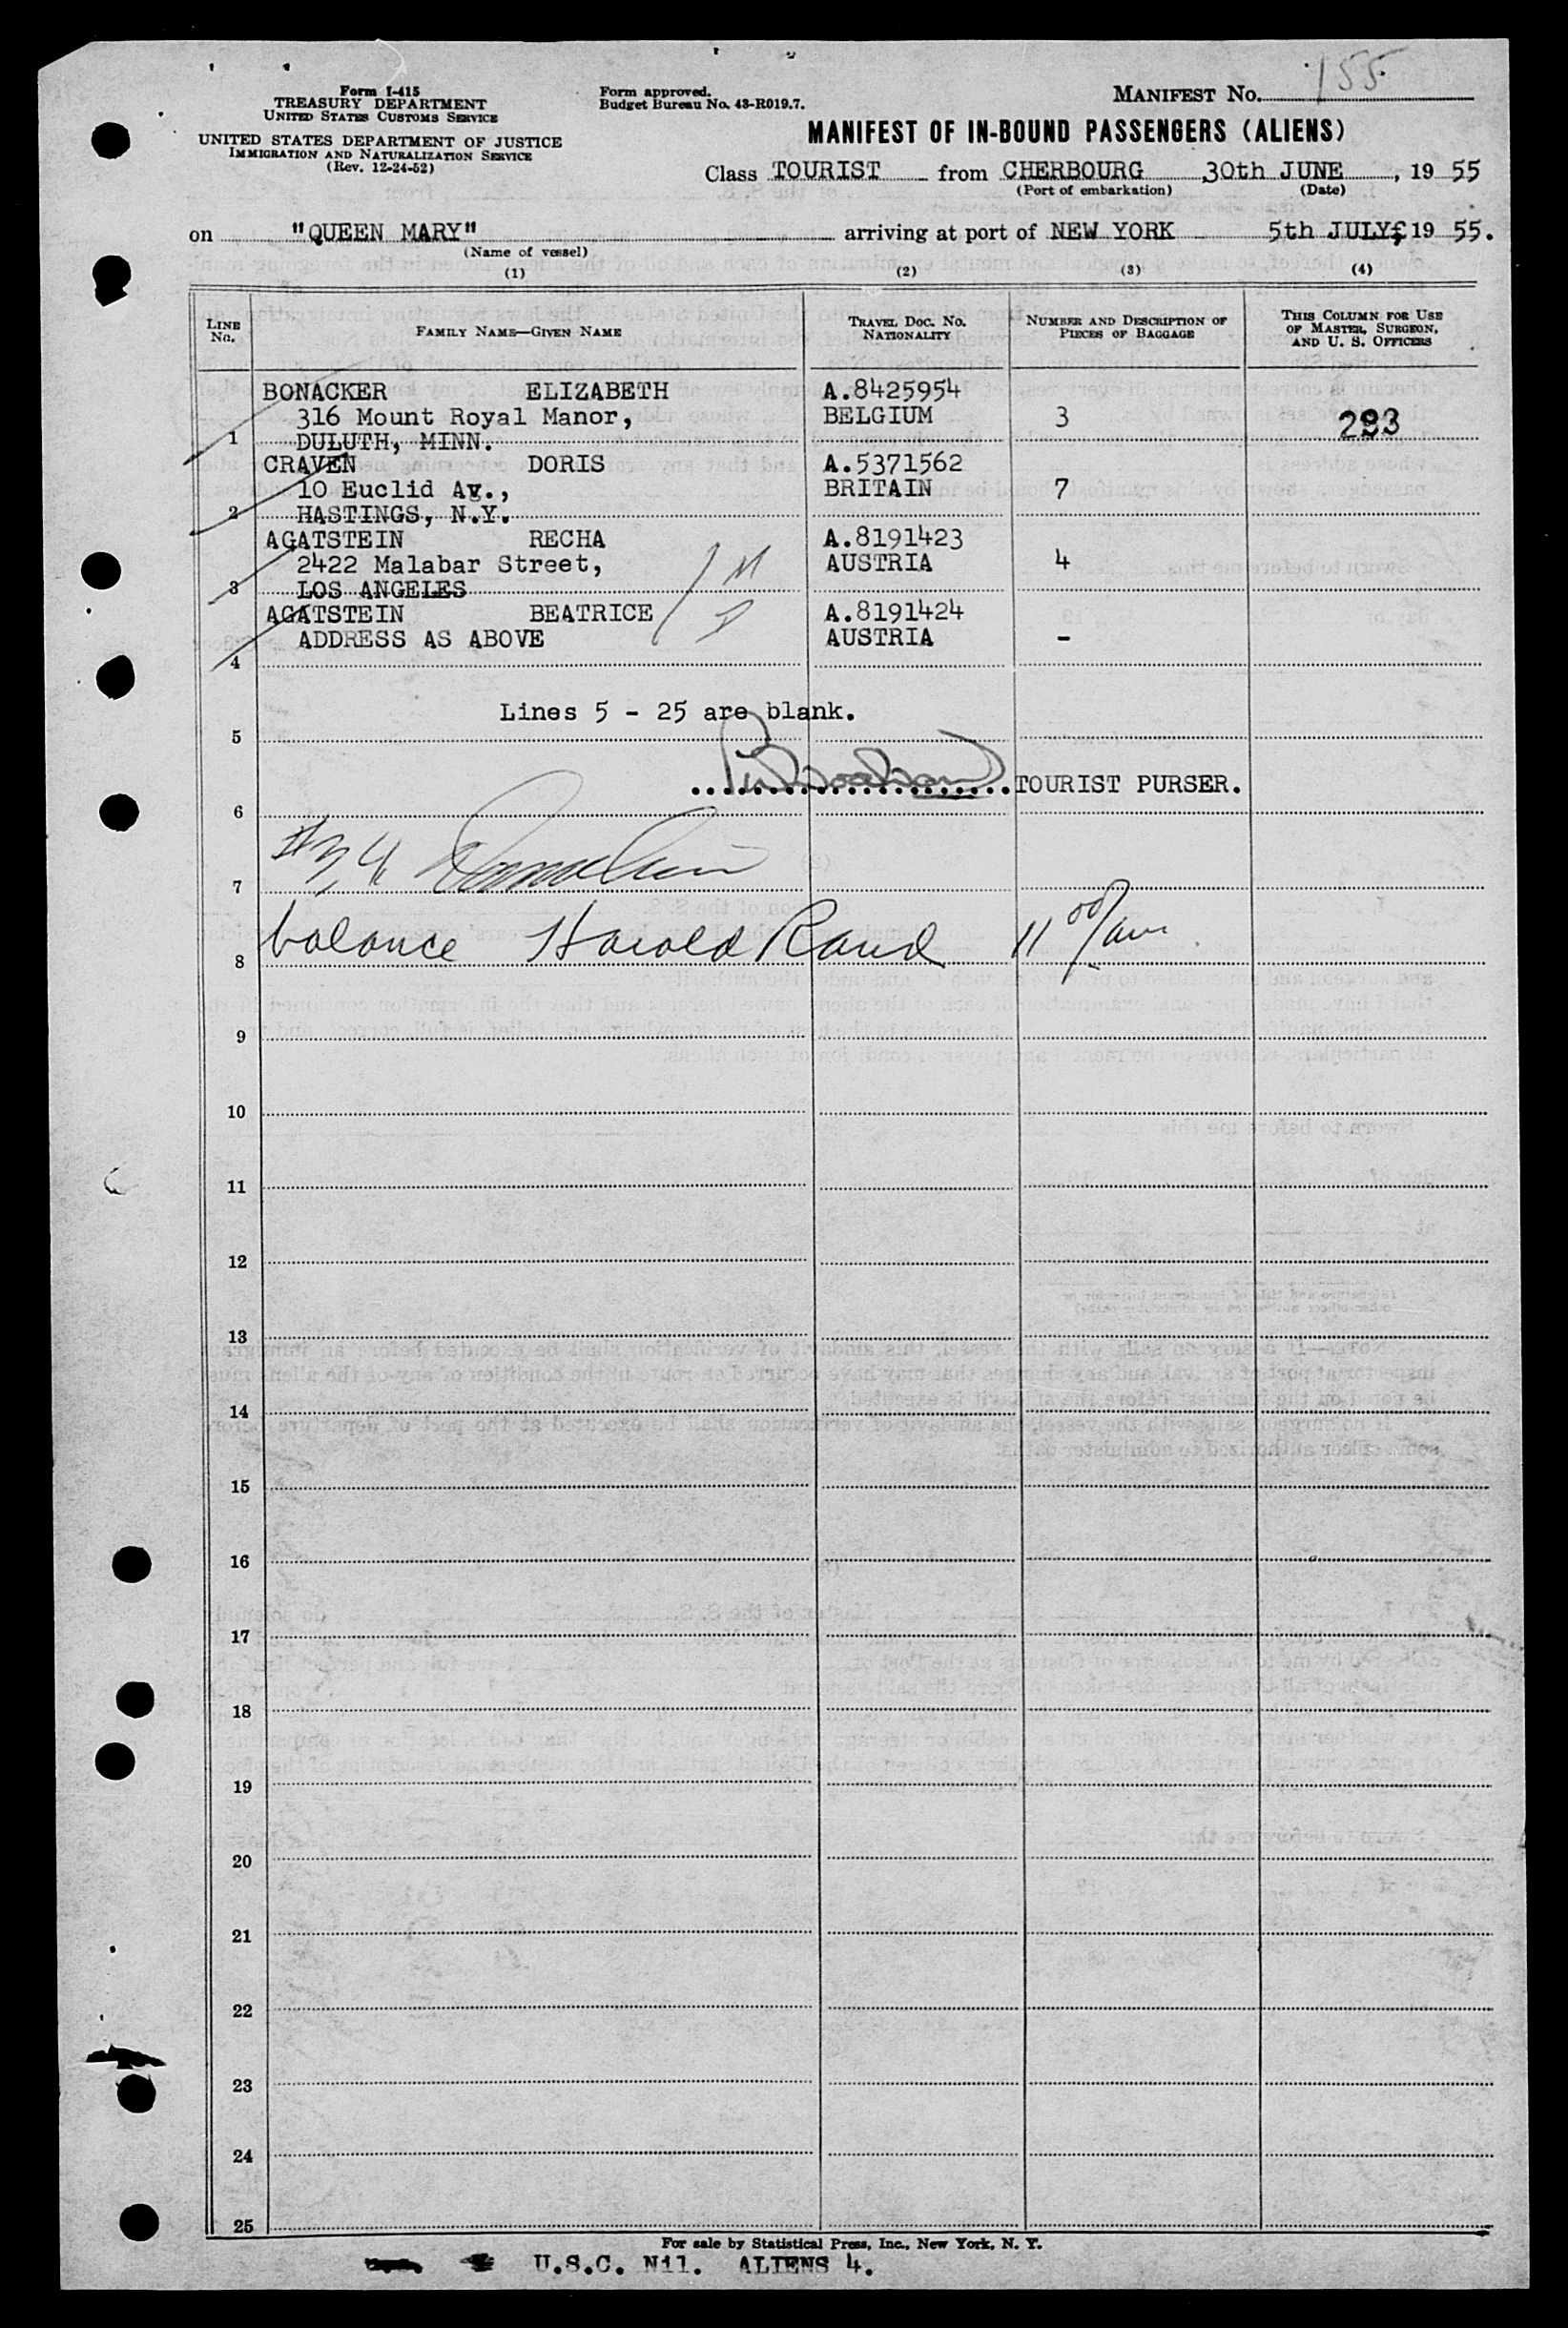 Form I-415
TREASURY DEPARTMENT
UNITED STATES CUSTOMS SERVICE
UNITED STATES DEPARTMENT OF JUSTICE
IMMIGRATION AND NATURALIZATION SERVICE
(Rev. 12-24-52)
Form approved.
Budget Bureau No. 43-R019.7.
MANIFEST NO. 155
MANIFEST OF IN-BOUND PASSENGERS (ALIENS)
Class TOURIST from CHERBOURG 30th JUNE, 19 55
(Port of embarkation) (Date)
on "QUEEN MARY" arriving at port of NEW YORK 5th JULY, 19 55.
(Name of vessel)
(1) (2) (3) (4)
LINE NO. FAMILY NAME—GIVEN NAME TRAVEL DOC. NO. NATIONALITY NUMBER AND DESCRIPTION OF PIECES OF BAGGAGE THIS COLUMN FOR USE OF MASTER, SURGEON, AND U. S. OFFICERS
BONACKER ELIZABETH A.8425954
316 Mount Royal Manor, BELGIUM 3 293
1 DULUTH, MINN.
CRAVEN DORIS A.5371562
10 Euclid Av., BRITAIN 7
2 HASTINGS, N.Y.
AGATSTEIN RECHA A.8191423
2422 Malabar Street, AUSTRIA 4
3 LOS ANGELES
AGATSTEIN BEATRICE A.8191424
ADDRESS AS ABOVE AUSTRIA -
4
Lines 5 - 25 are blank.
5
TOURIST PURSER.
6
#3,4
7
balance Harold Rand 11 00/am
8
9
10
11
12
13
14
15
16
17
18
19
20
21
22
23
24
25
For sale by Statistical Press, Inc., New York, N. Y.
U.S.C. Nil. ALIENS 4.